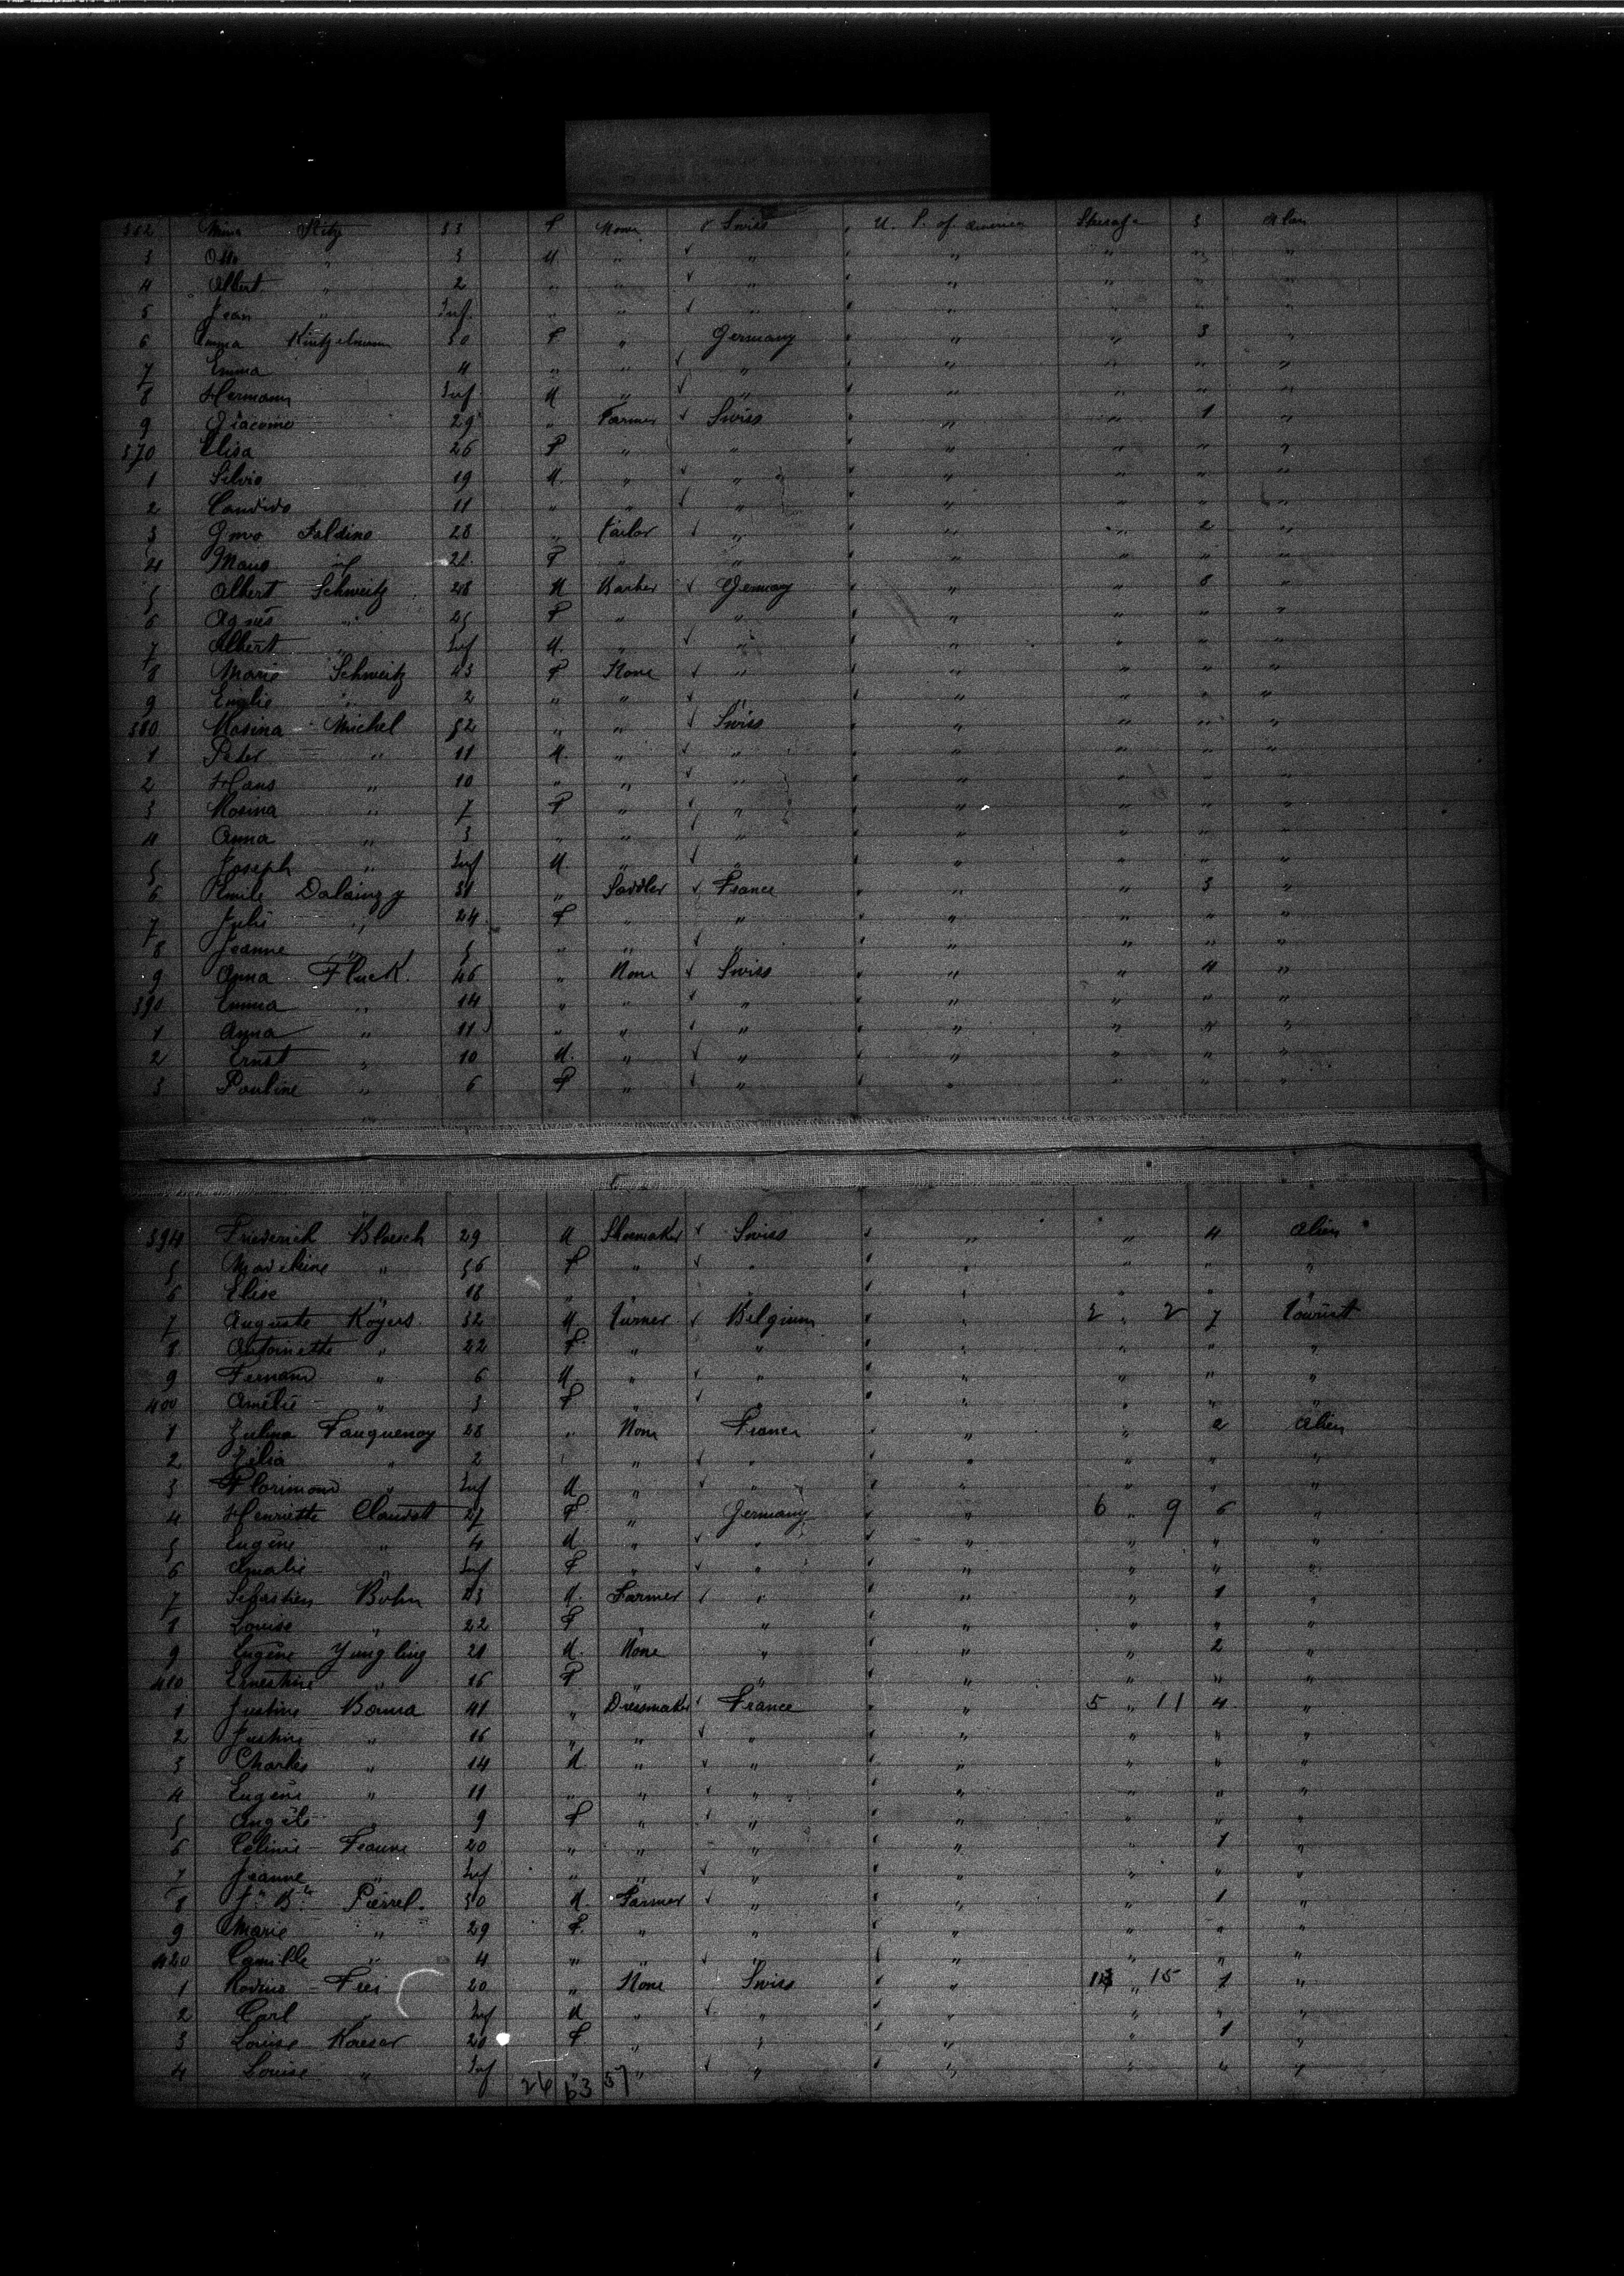 362 Mina Stitz 33 F None Swiss U. S. of america Steerage 3 Alien
3 Otto " 3 M " " " " " "
4 Albert " 2 " " " " " " "
5 Jean " Inf. " " " " " " "
6 Emma Kintzelmann 30 F " Germany " " 3 "
7 Emma 4 " " " " " " "
8 Hermann Inf M " " " " " "
9 Giacomo 29 " Farmer Swiss " " 1 "
370 Elisa 26 F " " " " " "
1 Silvio 19 M. " " " " " "
2 Candido 11 " " " " " " "
3 Faldino 28 " Tailor " " " 2 "
4 21 F " " " " " "
5 Albert Schweitz 28 M Barber Germany " " 8 "
6 Agnes " 25 F " " " " " "
7 Albert " Inf M. " " " " " "
8 Marie Schweitz 23 F None " " " " "
9 Emilie " 2 " " " " " " "
380 Rosina Michel 52 " " Swiss " " " "
1 Peter " 11 M. " " " " " "
2 Hans " 10 " " " " " " "
3 Rosina " 7 F " " " " " "
4 Anna " 3 " " " " " " "
5 Joseph " Inf M. " " " " " "
6 Emile Dalainzy 31 " Saddler France " " 3 "
7 Julie " 24 F " " " " " "
8 Jeanne " 5 " " " " " " "
9 Anna Fluck. 46 " None Swiss " " 4 "
390 Emma " 14 " " " " " " "
1 Anna " 11 " " " " " " "
2 Ernst " 10 M. " " " " " "
3 Pauline " 6 F " " " " " "
394 Friederich Bloesch 29 M Shoemaker Swiss " " 4 Alien
5 Madeleine " 56 F " " " " " "
6 Elise " 18 " " " " " " "
7 Auguste Koyers 32 M. Turner Belgium " 2 " 2 7 Tourist
8 Antoinette " 22 F " " " " " "
9 Fernand " 6 M. " " " " " "
400 Amélie " 3 F " " " " " "
1 Zulma Fauquenoy 28 " None France " " 2 Alien
2 Zélia " 2 " " " " " "
3 Florimond " Inf M " " " " " "
4 Henriette Claudot 27 F " Germany " 6 " 9 6 "
5 Eugène " 4 M " " " " " "
6 Amalie " Inf F " " " " " "
7 Sebastien Bohn 23 M. Farmer " " " 1 "
8 Louise " 22 F " " " " " "
9 Eugène Yungling 21 M. None " " " 2 "
410 Ernestine " 16 F " " " " " "
1 Justine Bonna 41 " Dressmaker France " 5 " 11 4 "
2 Justine " 16 " " " " " " "
3 Charles " 14 M " " " " " "
4 Eugène " 11 " " " " " " "
5 Angèle " 9 F " " " " " "
6 Celinie Feaune 20 " " " " " 1 "
7 Jeanne " Inf " " " " " " "
8 Jn Bte Pierrel. 30 M. Farmer " " " 1 "
9 Marie " 29 F. " " " " " "
420 Camille " 4 " " " " " " "
1 Frei 20 " None Swiss " " 15 1 "
2 Carl " Inf M " " " " " "
3 Louise Kaeser 20 F " " " " 1 "
4 Louise " Inf " " " " " " "
24 63 57